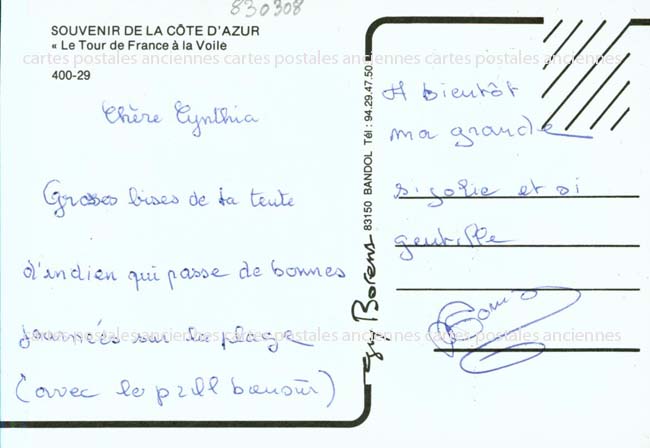 830308
SOUVENIR DE LA CÔTE D'AZUR
« Le Tour de France à la Voile
400-29
Chère Cynthia
Grosses bises de ta tente
d'indien qui passe de bonnes
journées sur la plage
(avec le
A bientôt
ma grande
si jolie et si
gentille
83150 BANDOL Tél : 94.29.47.50
cartes postales anciennes cartes postales anciennes cartes postales anciennes
cartes postales anciennes cartes postales anciennes cartes postales anciennes